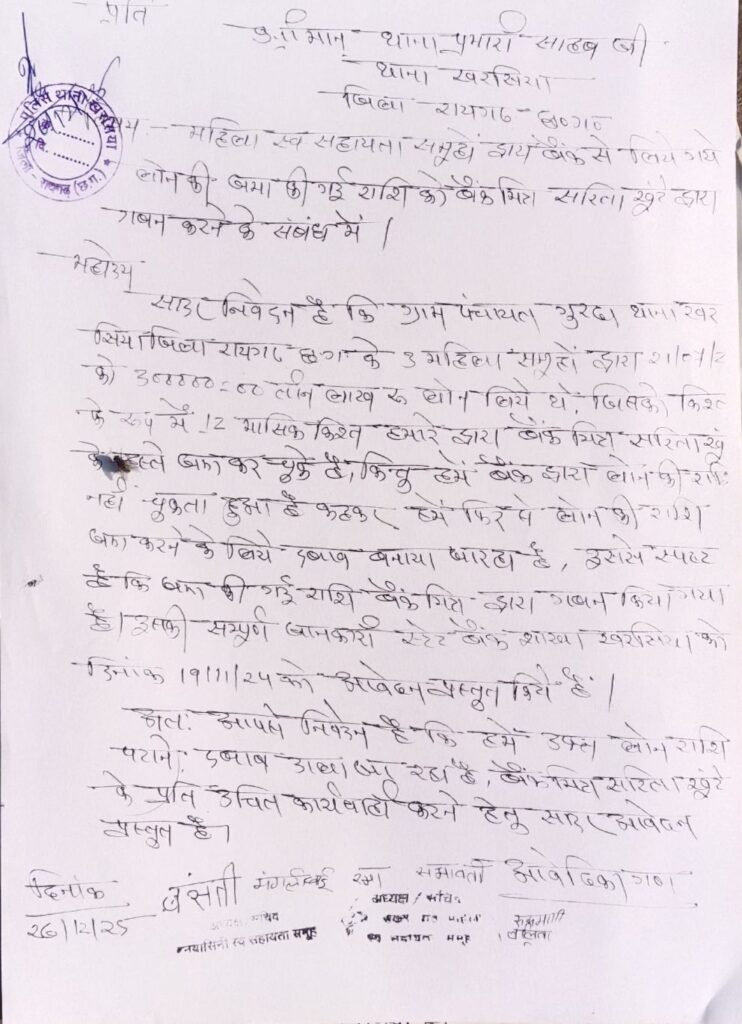 प्रति
श्रीमान् थाना प्रभारी साहब जी
थाना खरसिया
जिला रायगढ़ छ०ग०
विषय :- महिला स्व सहायता समूहों द्वारा बैंक से लिये गये
लोन की जमा की गई राशि को बैंक मित्र सरिता खूंटे द्वारा
गबन करने के संबंध में ।
महोदय
सादर निवेदन है कि ग्राम पंचायत गुरदा थाना खर
सिया जिला रायगढ़ छ०ग के 3 महिला समूहों द्वारा
को 300000=00 तीन लाख रू लोन लिये थे, जिसको किश्त
के रूप में 12 मासिक किश्त हमारे द्वारा बैंक मित्र सरिता खूं
के हस्ते जमा कर चूके है, किन्तु हमें बैंक द्वारा लोन की राशि
नहीं चुकता हुआ है कहकर हमें फिर से लोन की राशि
जमा करने के लिये दबाव बनाया जा रहा है, इससे स्पष्ट
है कि जमा की गई राशि बैंक मित्र द्वारा गबन किया गया
है। इसकी सम्पूर्ण जानकारी स्टेट बैंक शाखा खरसिया को
दिनांक 19/11/25 को आवेदन प्रस्तुत किये हैं ।
अतः आपसे निवेदन है कि हमें उक्त लोन राशि
पटाने दबाव डाला जा रहा है, बैंक मित्र सरिता खूंटे
के प्रति उचित कार्यवाही करने हेतू सादर आवेदन
प्रस्तुत है।
दिनांक बंसती मंगलीबाई रमा समावती आवेदिकागण
26/12/25 अध्यक्ष / सचिव
अध्यक्ष सचिव
स्व सहायता समूह